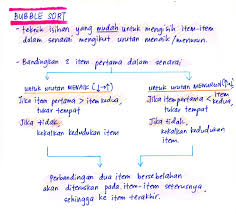 BUBBLE SORT
- teknik isihan yang mudah untuk mengisih item-item
dalam senarai mengikut urutan menaik/menurun.
- Bandingkan 2 item pertama dalam senarai
untuk urutan MENAIK (↓→↑)
Jika item pertama > item kedua,
tukar tempat
Jika tidak,
kekalkan kedudukan item
untuk urutan MENURUN (↑→↓)
Jika item pertama < item kedua,
tukar tempat
Jika tidak,
kekalkan kedudukan
item.
Perbandingan dua item bersebelahan
akan diteruskan pada item-item seterusnya
sehingga ke item terakhir.